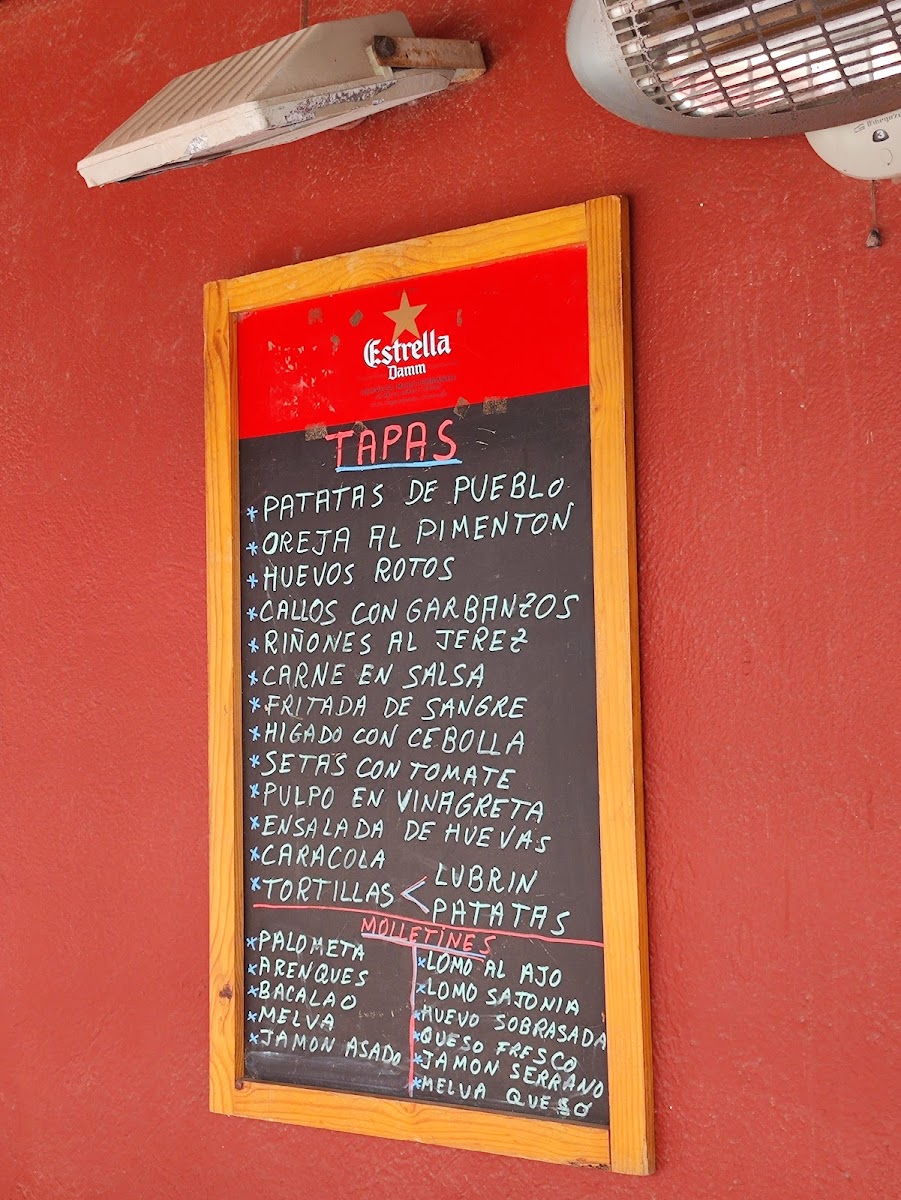 Estrella
Damm
TAPAS
* PATATAS DE PUEBLO
* OREJA AL PIMENTON
* HUEVOS ROTOS
* CALLOS CON GARBANZOS
* RIÑONES AL JEREZ
* CARNE EN SALSA
* FRITADA DE SANGRE
* HIGADO CON CEBOLLA
* SETAS CON TOMATE
* PULPO EN VINAGRETA
* ENSALADA DE HUEVAS
* CARACOLA
* TORTILLAS < LUBRIN
PATATAS
MOLLETINES
* PALOMETA
* ARENQUES
* BACALAO
* MELVA
* JAMON ASADO
* LOMO AL AJO
* LOMO SAJONIA
* HUEVO SOBRASADA
* QUESO FRESCO
* JAMON SERRANO
* MELVA QUESO